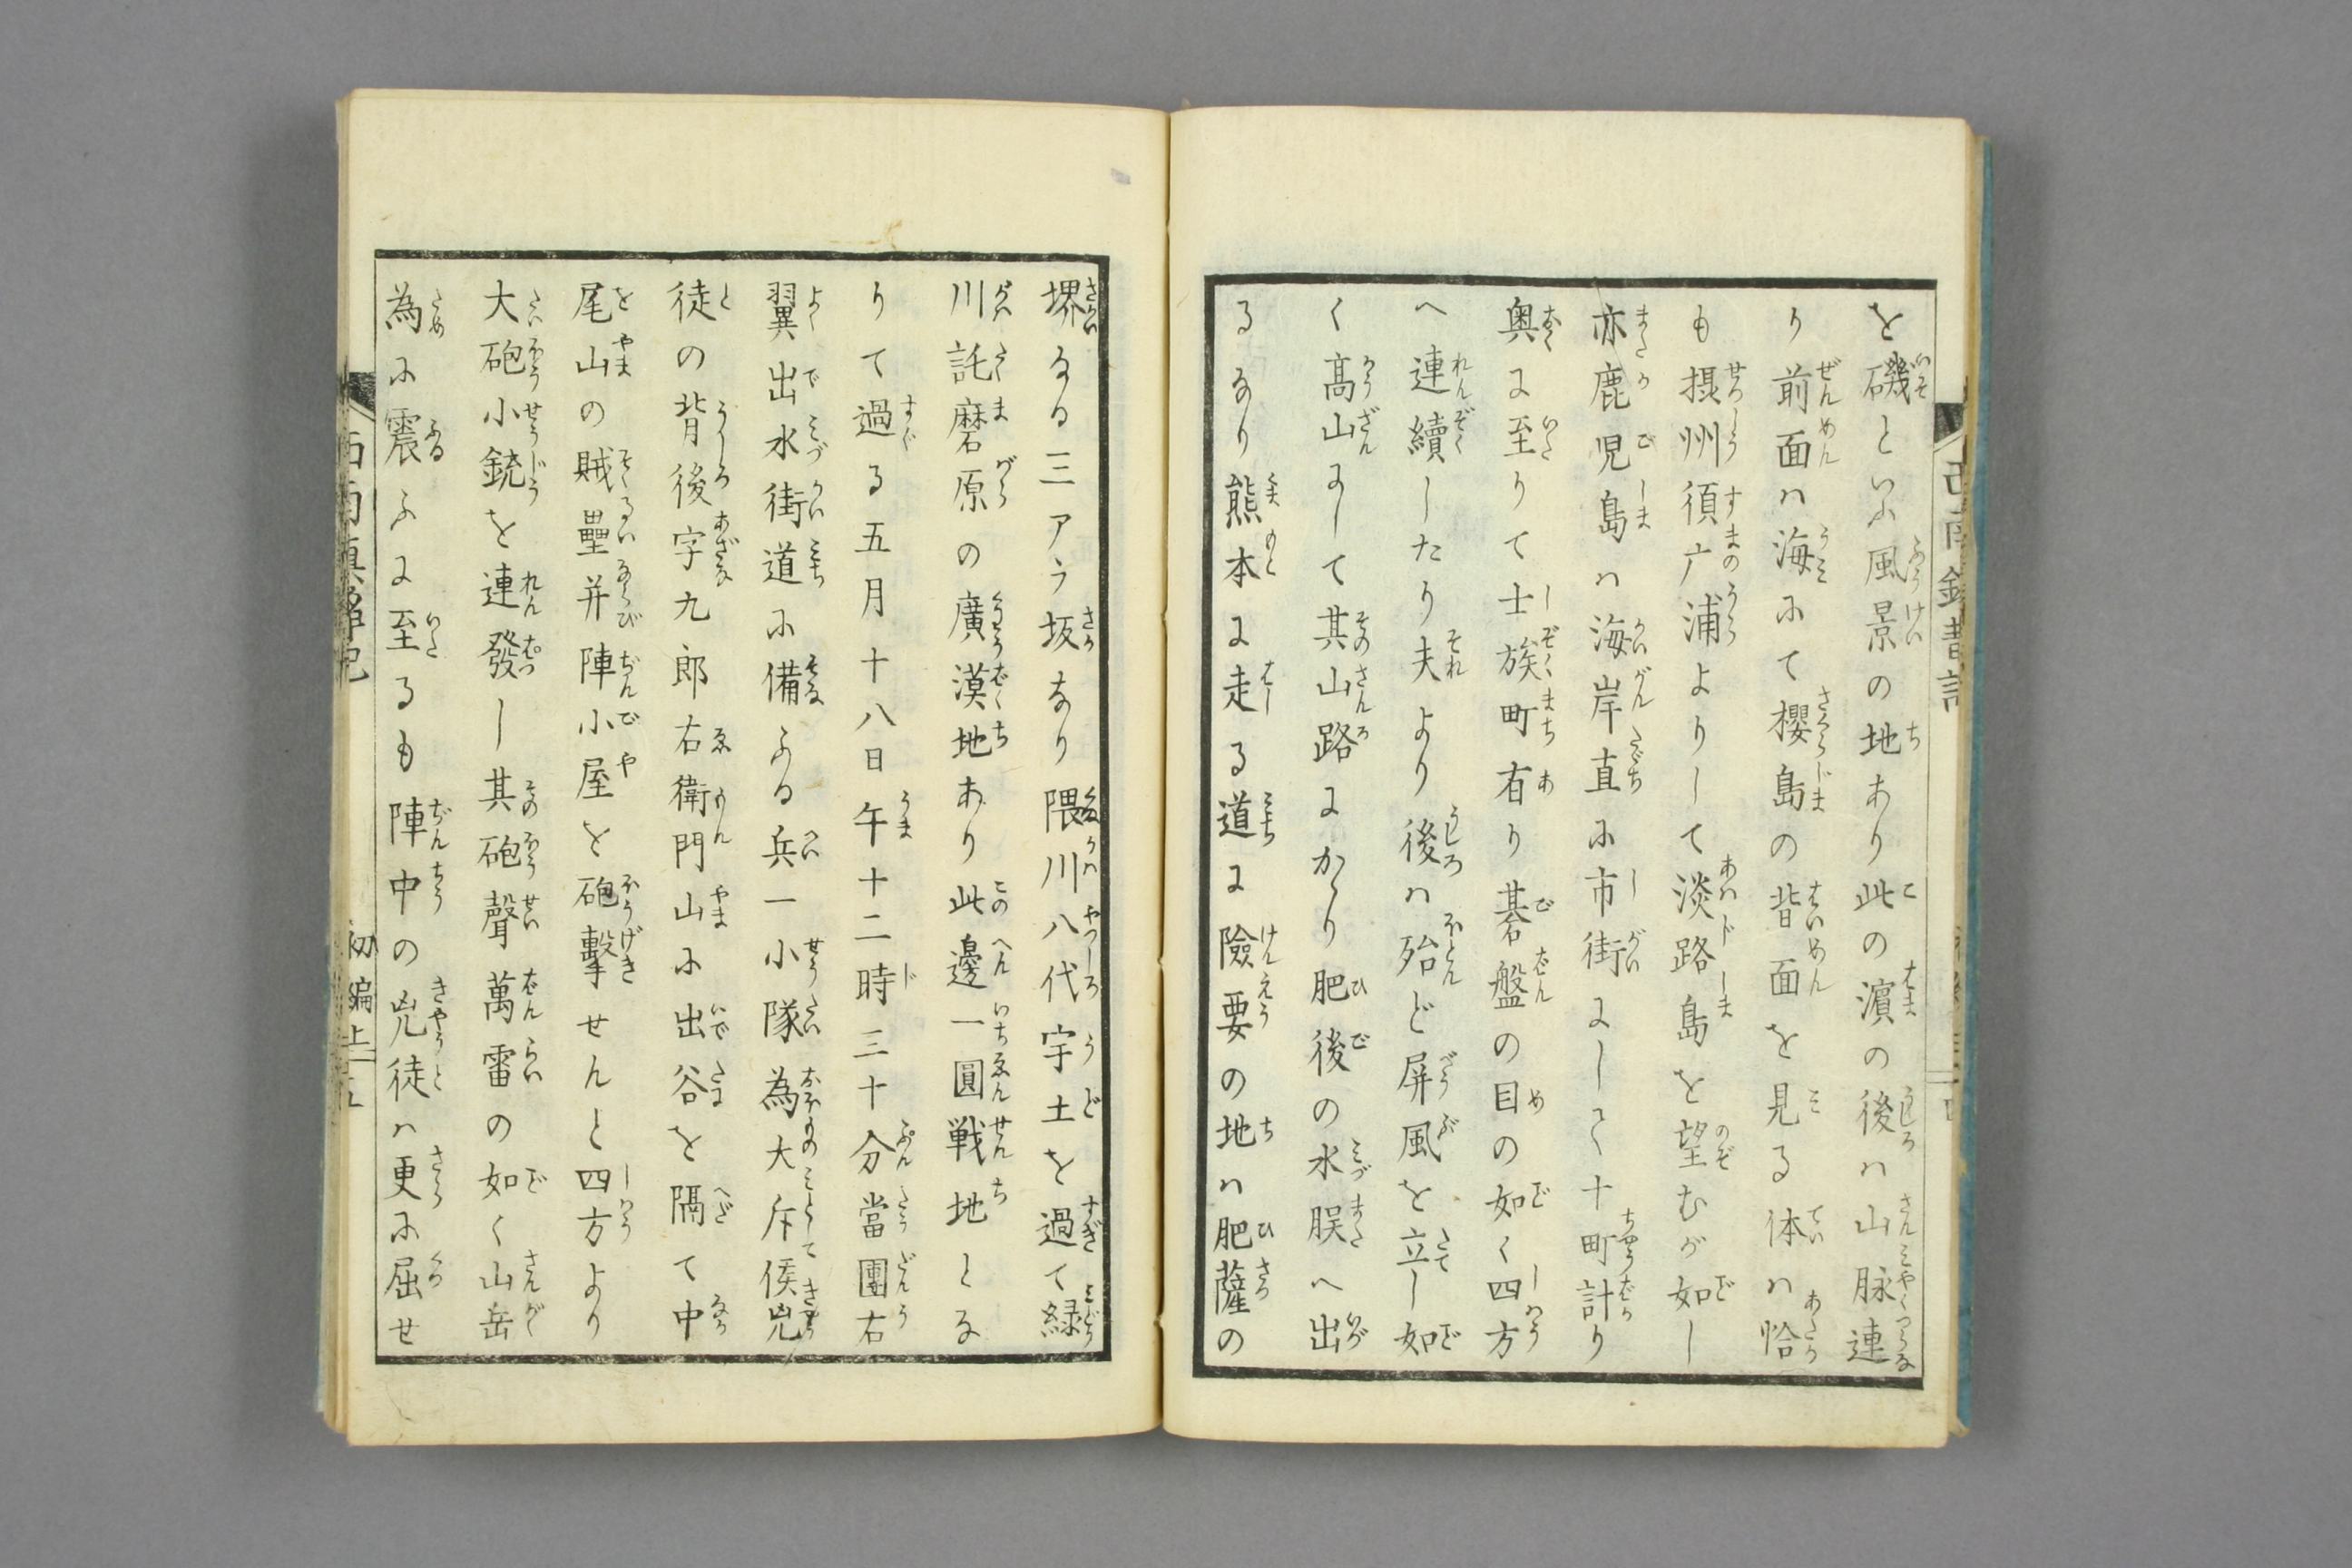 を磯といふ風景の地あり此の濵の後ハ山脉連
り前面ハ海にて櫻島の背面を見る体ハ恰
も摂州須广浦よりして淡路島を望むが如し
亦鹿児島ハ海岸直に市街にして十町計り
奥に至りて士族町有り碁盤の目の如く四方
へ連續したり夫より後ハ殆ど屏風を立し如
く髙山にして其山路にかゝり肥後の水脵へ出
るなり熊本に走る道に險要の地ハ肥薩の
堺なる三アラ坂なり隈川八代宇土を過て緑
川託磨原の廣漠地あり此邊一圓戦地とな
りて過る五月十八日午十二時三十分當團右
翼出水街道に備ふる兵一小隊為大斥候兇
徒の背後字九郎右衛門山に出谷を隔て中
尾山の賊壘并陣小屋を砲擊せんと四方より
大砲小銃を連發し其砲聲萬雷の如く山岳
為に震ふに至るも陣中の兇徒ハ更に屈せ
初編上